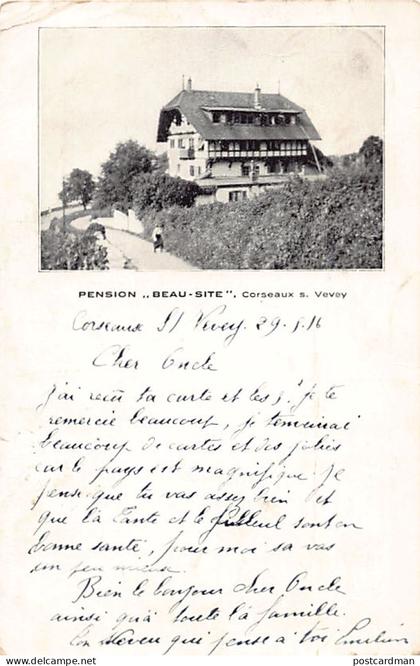 PENSION „BEAU-SITE", Corseaux s. Vevey
Corseaux s/ Vevey. 29.1.16
Cher Oncle
j'ai reçu ta carte et les je te
remercie beaucoup, je
beaucoup de cartes et des jolies
car le pays est magnifique. Je
pense que tu vas assez bien et
que la Tante et le filleul sont en
bonne santé, pour moi sa vas
un peu mieux.
Bien le bonjour cher Oncle
ainsi qu'à toute la famille.
Ton neveu qui pense à toi Emilien
postcardman